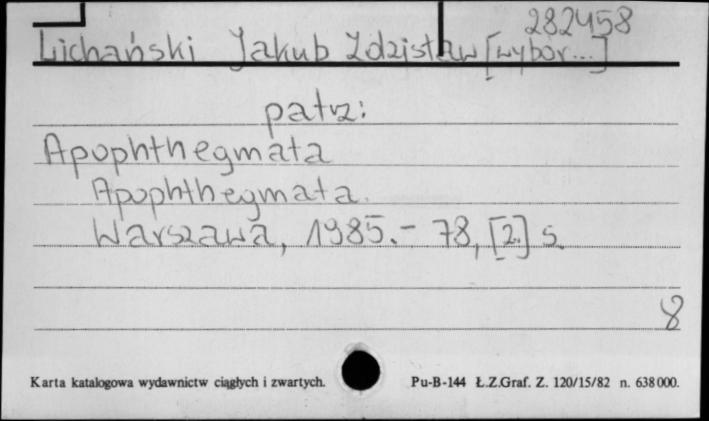 282458
Lichański Jakub Zdzisław [wybór...]
patrz:
Apophthegmata
Apophthegmata.
Warszawa, 1985.- 78, [2] s.
8
Karta katalogowa wydawnictw ciągłych i zwartych. Pu-B-144 Ł.Z.Graf. Z. 120/15/82 n. 638000.